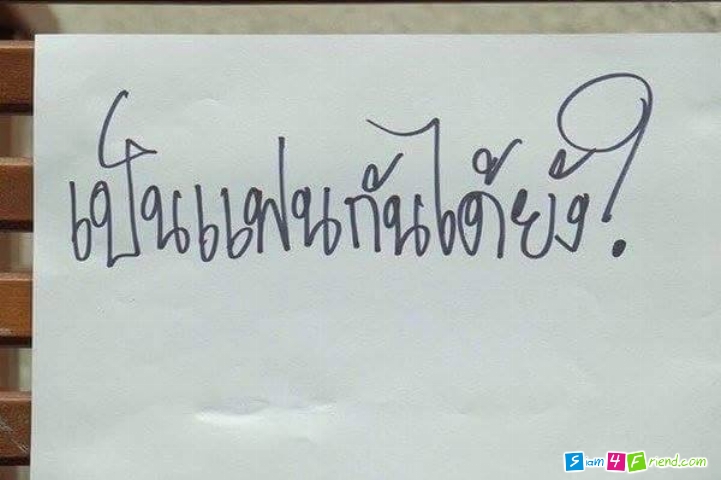 เป็นแฟนกันได้ยัง?
Siam4Friend.com